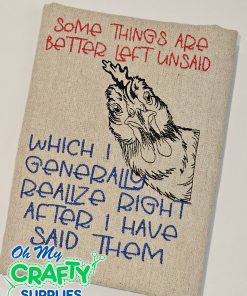 SOME THINGS ARE
BETTER LEFT UNSAID
WHICH I
GENERALLY
REALIZE RIGHT
AFTER I HAVE
SAID THEM
Oh My
CRAFTY
SUPPLIES